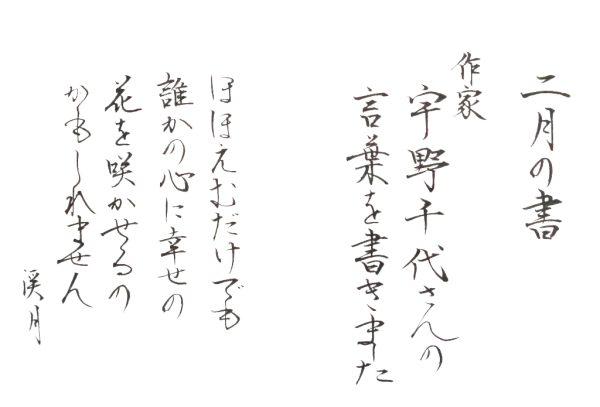 二月の書
作家
宇野千代さんの
言葉を書きました
ほほえむだけでも
誰かの心に幸せの
花を咲かせるの
かもしれません
渓月